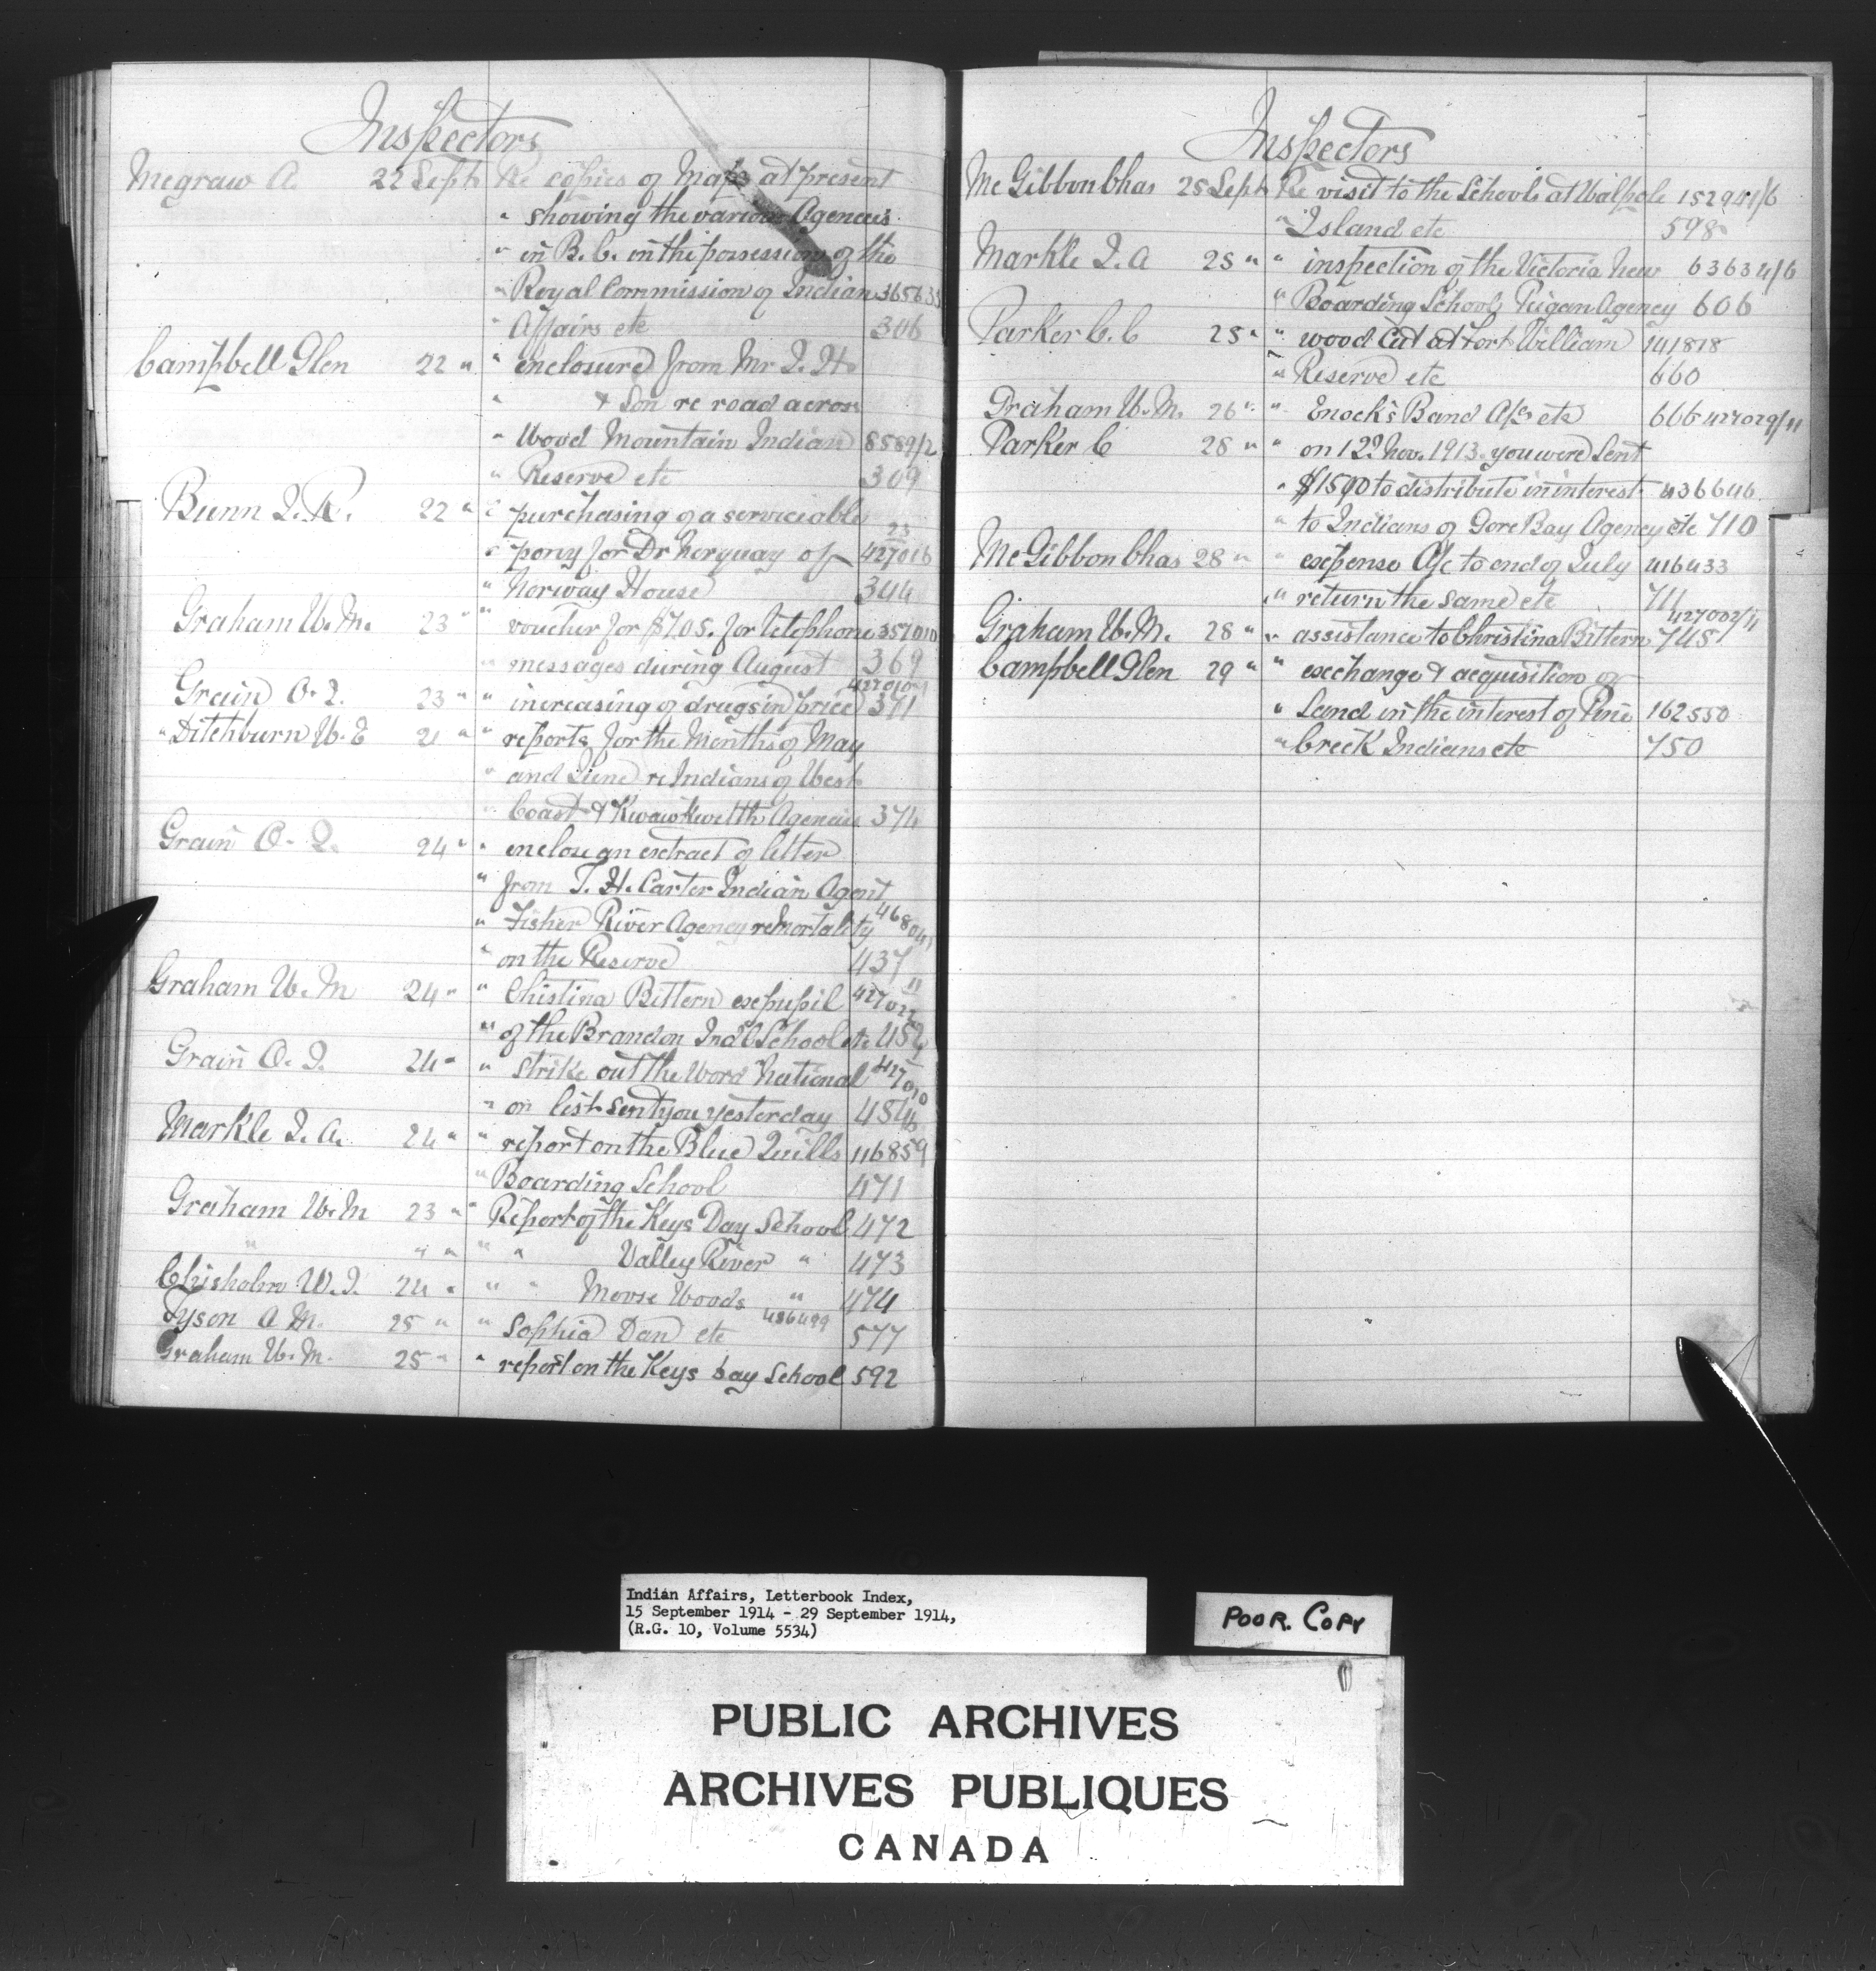 Inspectors
Megraw A. 22 Sept Re copies of Maps at present
" showing the various Agencies
" in B.C. in the possession of the
" Royal Commission of Indian 365633
" Affairs etc 306
Campbell Glen 22 " " enclosure from Mr J. H.
" & Son re road across
" Wood Mountain Indian 8589/2
" Reserve etc 309
Bunn J. R. 22 " " purchasing of a serviceable
" pony for Dr Norquay of 427016 23
" Norway House 344
Graham W. M. 23 " " voucher for $7.05. for telephone 357010
" messages during August 369
Grain O. I. 23 " " increasing of drugs in price 371
" Ditchburn W. E 21 " " reports for the Months of May
" and June re Indians of West
" Coast & Kwawkwelth Agencies 374
Grain O. I. 24 " " enclose an extract of letter
" from T. H. Carter Indian Agent
" Fisher River Agency re Mortality
" on the Reserve 437
Graham W. M 24 " " Christina Bittern ex pupil 427022 11
" of the Brandon Ind'l School etc 452
Grain O. I. 24 " " strike out the word National
" on list sent you yesterday 454
Markle J. A. 24 " " report on the Blue Quills 116859
" Boarding School 471
Graham W. M 23 " " Report of the Keys Day School 472
" " " " " Valley River " 473
Chisholm W. J. 24 " " " Moose Woods " 474
Tyson A M. 25 " " Sophia Dan etc 436499 577
Graham W. M. 25 " " report on the Keys Day School 592
Inspectors
McGibbon Chas 25 Sept Re visit to the Schools at Walpole 152941/6
" Island etc 598
Markle J. A 25 " " inspection of the Victoria New 63634/6
" Boarding School, Peigan Agency 606
Parker C. C 25 " " wood cut at Fort William 141818
" Reserve etc 660
Graham W. M. 26 " " Enock's Band A/c etc 666 427029/11
Parker C 28 " " on 12th Nov. 1913. you were sent
" $1500 to distribute in interest 436646
" to Indians of Gore Bay Agency etc 710
McGibbon Chas 28 " " expense A/c to end of July 416433
" return the same etc 711
Graham W. M. 28 " " assistance to Christina Bittern 745 427002/11
Campbell Glen 29 " " exchange & acquisition of
" Land in the interest of Pine 162550
" Creek Indians etc 750
Indian Affairs, Letterbook Index,
15 September 1914 - 29 September 1914,
(R.G. 10, Volume 5534)
POOR. COPY
PUBLIC ARCHIVES
ARCHIVES PUBLIQUES
CANADA